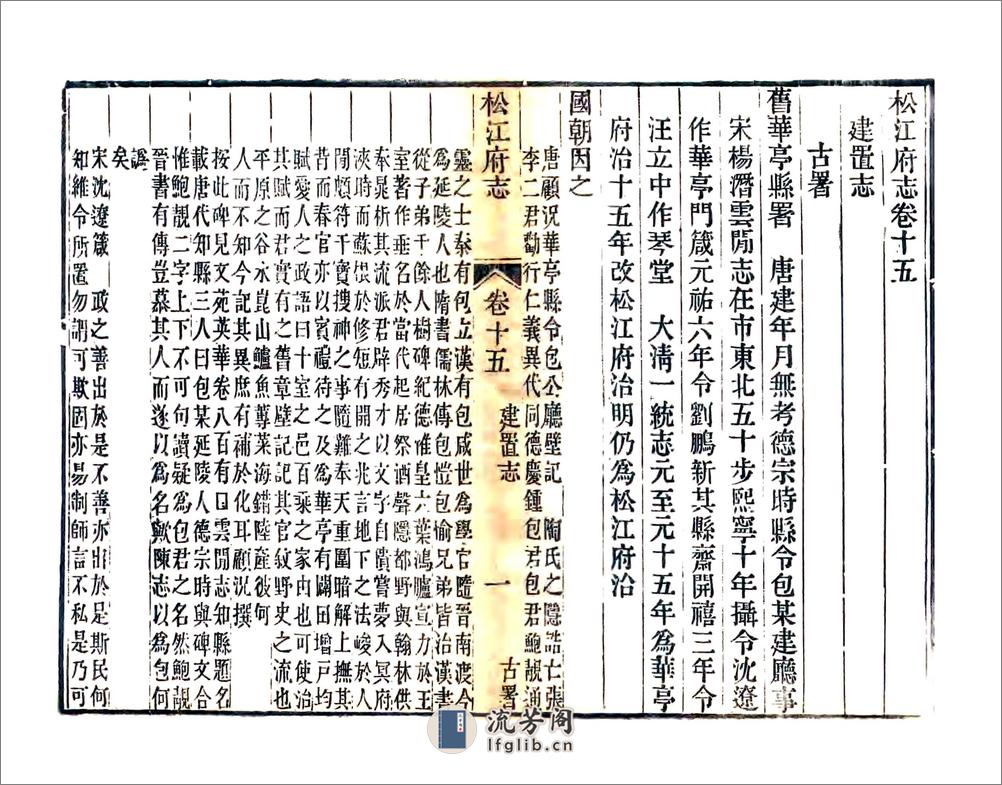 松江府志卷十五
建置志
古署
舊華亭縣署　唐建年月無考德宗時縣令包某建廳事
宋楊潛雲閒志在市東北五十步熙寧十年攝令沈遼
作華亭門箴元祐六年令劉鵬新其縣齋開禧三年令
汪立中作琴堂　大清一統志元至元十五年為華亭
府治十五年改松江府治明仍為松江府治
國朝因之
唐顧況華亭縣令包公廳壁記　陶氏之隱誥亡張
李二君勸行仁義異代同德慶鍾包君包君鮑靚通
松江府志　卷十五　建置志　古署　一
靈之士秦有包立漢有包咸世為學官隨晉南渡今
為延陵人也隋書儒林傳包愷包愉兄弟皆治漢書
從子弟千餘人樹碑紀德惟皇六葉鴻臚宣力於王
室著作垂名於當代起居祭酒聲隱都野與翰林供
奉晁析其流派君辟秀才以文字自賞嘗夢入冥府
浹時而蘇根於修短有開之兆言地下之法峻於人
閒頗符干寶搜神之事隨難奉天重圍暗解上撫其
背而春官亦以賓禮待之及為華亭有闢田增戶均
賦愛人之政語曰十室之邑百乘之家冉也可使治
其賦而君實有之舊章壁記記其官紋野史之流也
平原之谷水崑山鱸魚蓴菜海錯陸產彼何
人而不知今記其異庶有補於化耳顧況撰
按此碑見文苑英華卷八百有□雲閒志知縣題名
載唐代知縣三人曰包某延陵人德宗時與碑文合
惟鮑靚二字上下不可句讀疑為包君之名然鮑靚
晉書有傳豈慕其人而遂以為名歟陳志以為包何
誤
矣
宋沈遼箴　政之善出於是不善亦出於是斯民何
知維令所置勿謂可欺固亦易制師言不私是乃可
流芳阁
lfglib.cn